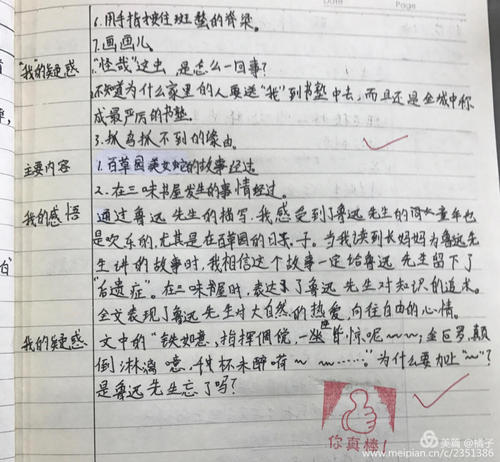 Date
Page
6.用手指按住斑蝥的脊梁。
7.画画儿
"我"的疑惑
"怪哉"这虫,是怎么一回事?
不知道为什么家里的人要送"我"到书塾中去,而且还是全城中称
成最严厉的书塾。
3.抓鸟抓不到的缘由。
主要内容
1.百草园美女蛇的故事经过
2.在三味书屋发生的事情经过。
我的感悟
通过鲁迅先生的描写,我感受到了鲁迅先生的童年也
是快乐的,尤其是在百草园的日子。当我读到长妈妈为鲁迅先
生讲的故事时,我相信这个故事一定给鲁迅先生留下了
"后遗症"。在三味书屋时,表达了鲁迅先生对知识的追求。
全文表现了鲁迅先生对大自然的热爱,向往自由的心情。
我的疑惑
文中的"铁如意,指挥倜傥,一坐皆惊呢~~;金叵罗,颠
倒淋漓噫,千杯未醉嗬~~……"为什么要加上"~"?
是鲁迅先生忘了吗?
你真棒!
美篇 @橘子
www.meipian.cn/c/2351386